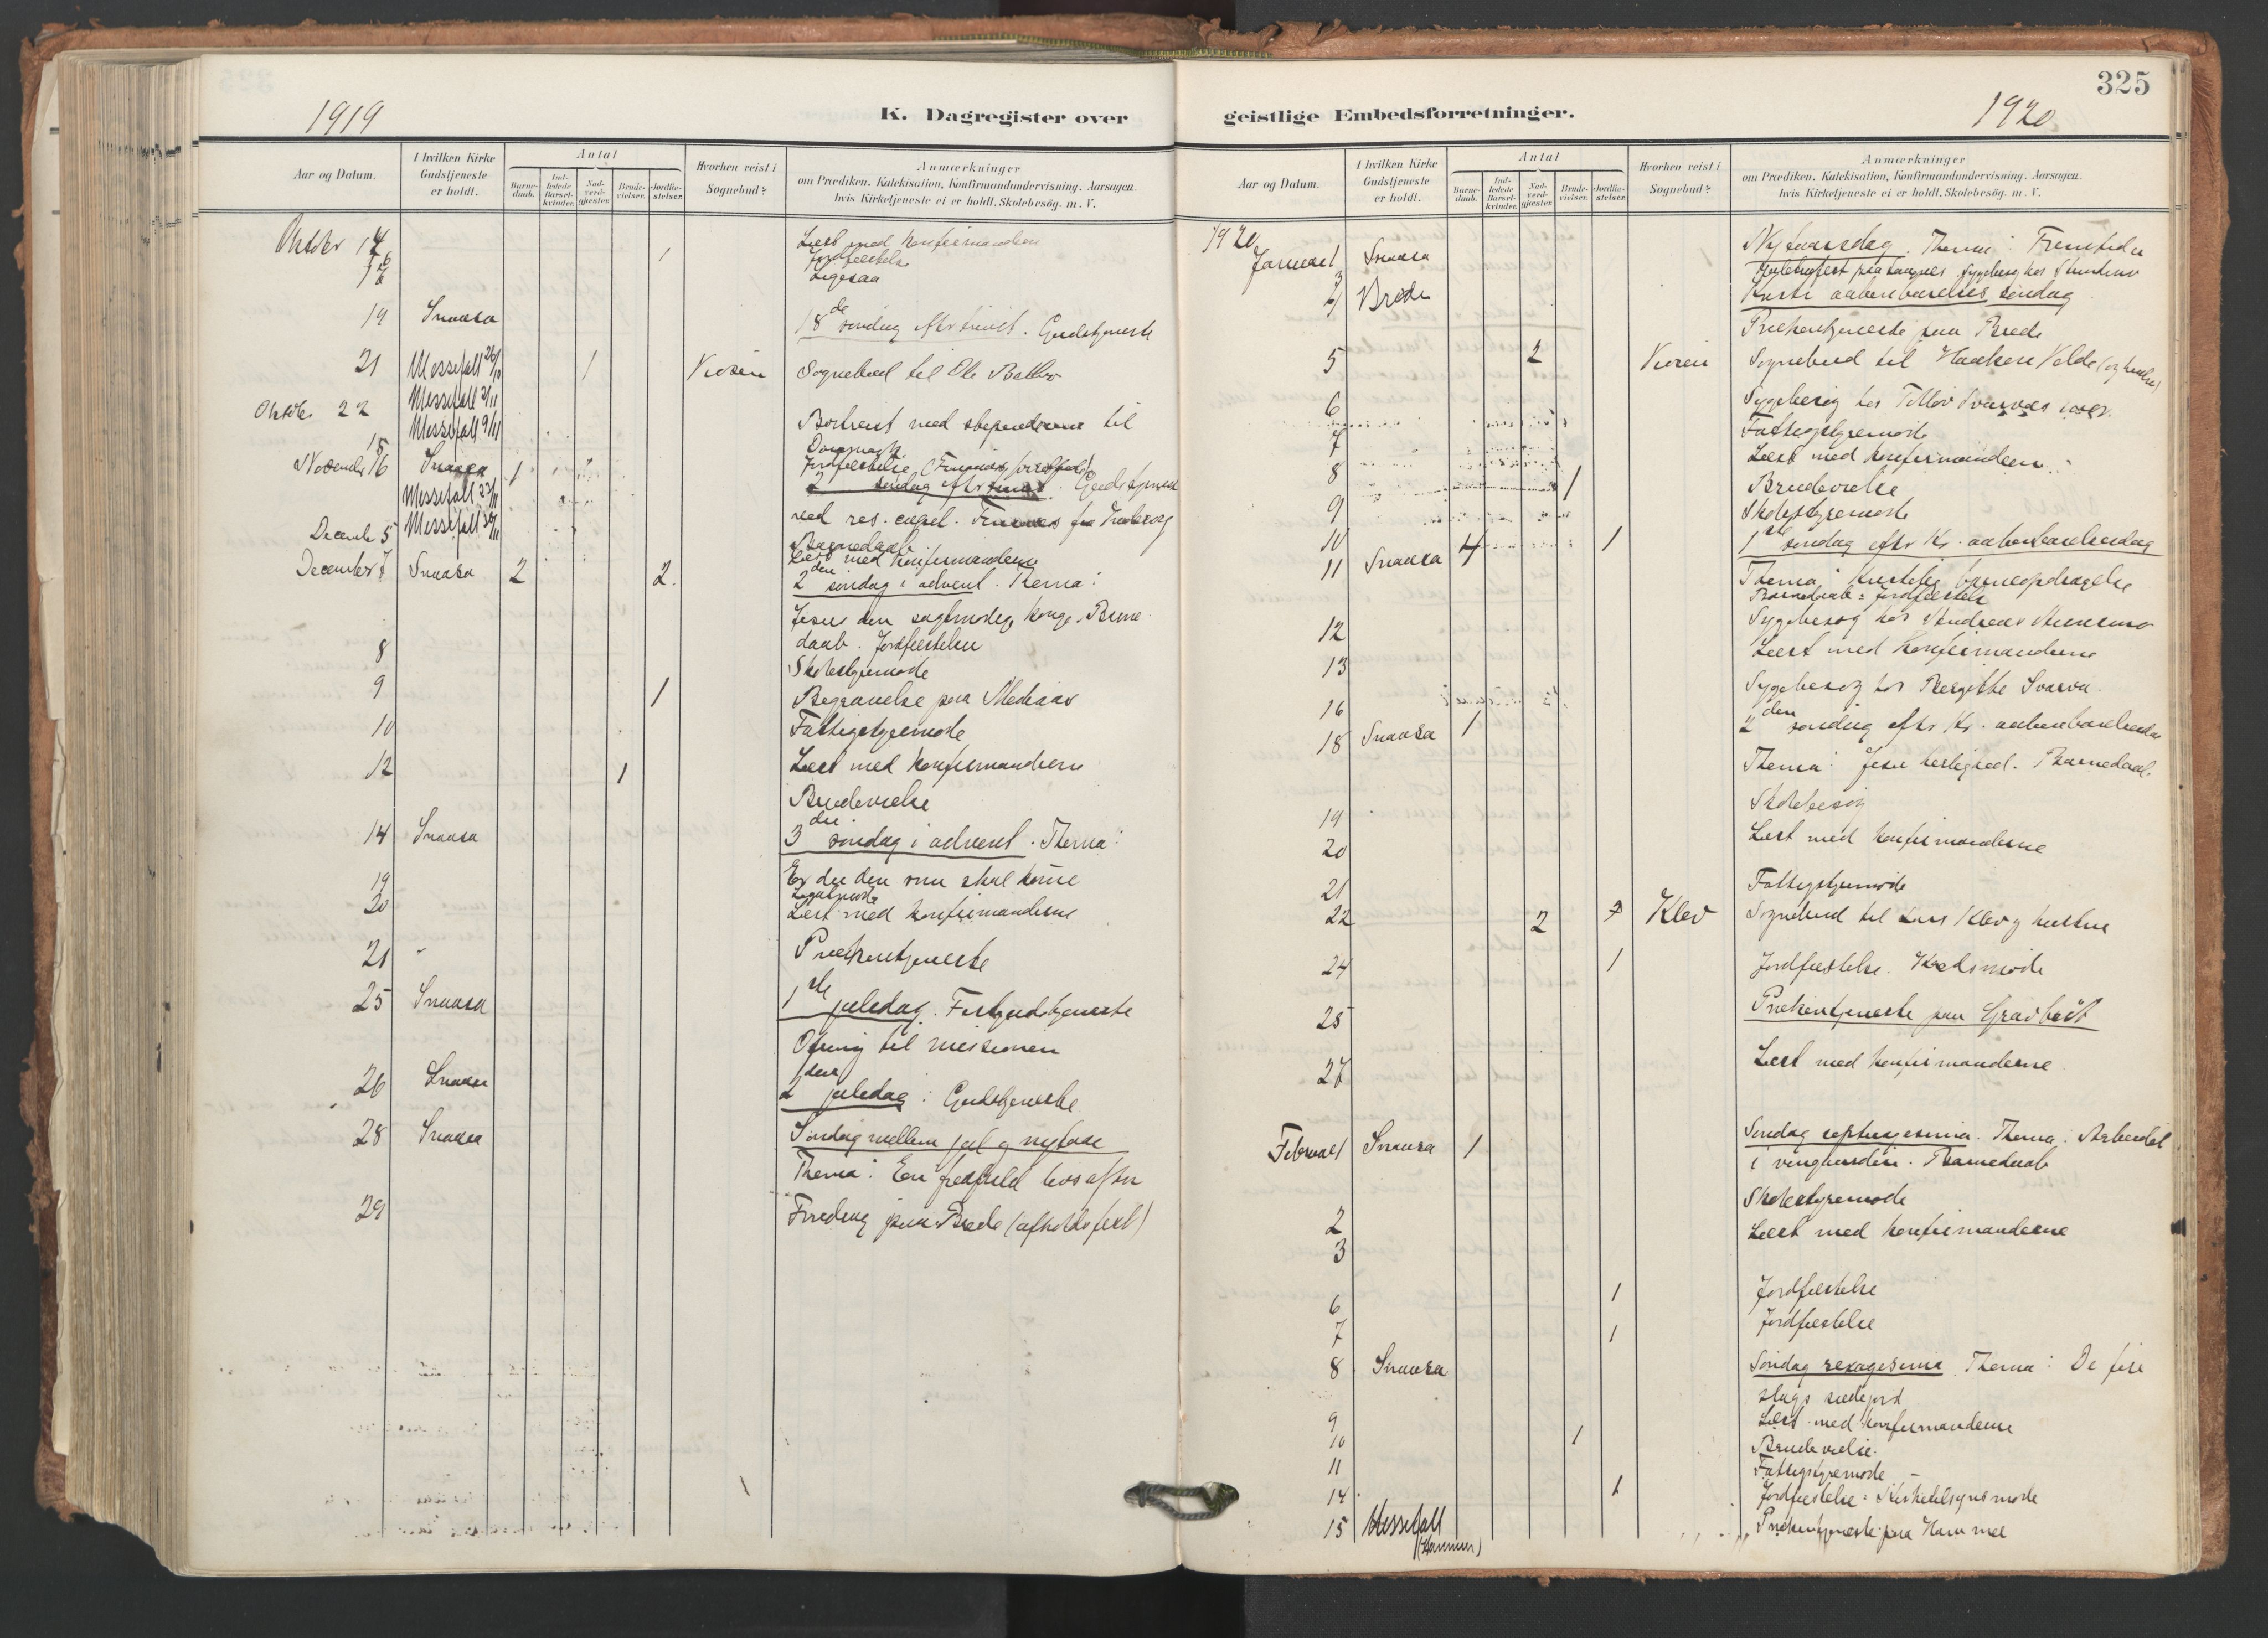 1919
K. Dagregister over
Aar og Datum.
I hvilken Kirke Gudstjeneste er holdt.
Antal
Barne-daab.
Ind-ledede Barsel-kvinder.
Nad-verd-gjester.
Brude-vielser.
Jordfæ-stelser.
Hvorhen reist i Sognebud?
Anmærkninger
om Prædiken, Katekisation, Konfirmandundervisning, Aarsagen,
hvis Kirketjeneste ei er holdt, Skolebesög. m. V.
Oktober 14 Læst med konfirmandene
1 Jordfæstelse
Ligesaa
19 Snaasa 18de søndag efter trinit. Gudstjeneste
21 Messefall 26/10 1 Sognebud til Ole
Messefall 2/11
Oktober 22 Messefall 9/11 Bortreist med stipendium til
Danmark
15 Jordfæstelse
November 16 Snaasa 1 søndag efter Gudstjeneste
Messefall 23/11 ved res. capel. fra
Messefall 30/11 Barnedaab
December 5 Læst med konfirmanderne
December 7 Snaasa 2 2. 2den søndag i advent. Thema:
Jesus den sagtmodige konge. Barne
daab. Jordfæstelser
8 Skolestyremøde
9 1 Begravelse paa
10 Fattigstyremøde
12 1 Læst med konfirmandene
Brudevielse
14 Snaasa 3die søndag i advent. Thema:
Er du den som skal komme
19
20 Læst med konfirmanderne
21 Prækentjeneste
25 Snaasa 1ste juledag. Festgudstjeneste
Ofring til missionen
26 Snaasa 2den juledag: Gudstjeneste
28 Snaasa Søndag mellem jul og nytaar
Thema: En fredfuld livsaften
29 Foredrag paa Brede (afholdsfest)
325
geistlige Embedsforretninger.
1920
Aar og Datum.
I hvilken Kirke Gudstjeneste er holdt.
Antal
Barne-daab.
Ind-ledede Barsel-kvinder.
Nad-verd-gjester.
Brude-vielser.
Jordfæ-stelser.
Hvorhen reist i Sognebud?
Anmærkninger
om Prædiken, Katekisation, Konfirmandundervisning, Aarsagen,
hvis Kirketjeneste ei er holdt, Skolebesög. m. V.
1920
Januar 1 Snaasa Nytaarsdag. Thema: Fremtiden
3 Juletrefest paa Sygebesøg hos
4 Brede Kristi aabenbarelses søndag
Prækentjeneste paa Brede
5 2 Sognebud til Haakon
6 Sygebesøg hos
7 Fattigstyremøde
8 Læst med konfirmanderne
1 Brudevielse
9 Skolestyremøde
10 1 1ste søndag efter Kr. aabenbarelsesdag
11 Snaasa 4 Thema: Kristelig barneopdragelse
Barnedaab = Jordfæstelse
12 Sygebesøg hos Andreas
13 Læst med konfirmanderne
16 Sygebesøg hos Bergitte
18 Snaasa 1 2den søndag efter Kr. aabenbarelsesdag
Thema: Jesu herlighed. Barnedaab
19 Skolebesøg
20 Læst med konfirmanderne
21 Fattigstyremøde
22 2 Klev Sognebud til Lars Klev og hustru
24 1 Jordfæstelse.
25 Prækentjeneste paa
27 Læst med konfirmanderne
Februar 1 Snaasa 1 Søndag septuagesima. Thema: Arbeidet
i vingaarden. Barnedaab
2 Skolestyremøde
3 Læst med konfirmanderne
6 1 Jordfæstelse
7 1 Jordfæstelse
8 Snaasa Søndag sexagesima Thema: De fire
slags sædejord
9 Læst med konfirmanderne
10 1 Brudevielse.
11 Fattigstyremøde
14 1 Jordfæstelse = Kirketilsynsmøde
15 Messefall Prækentjeneste paa Hammer
(Hammer)